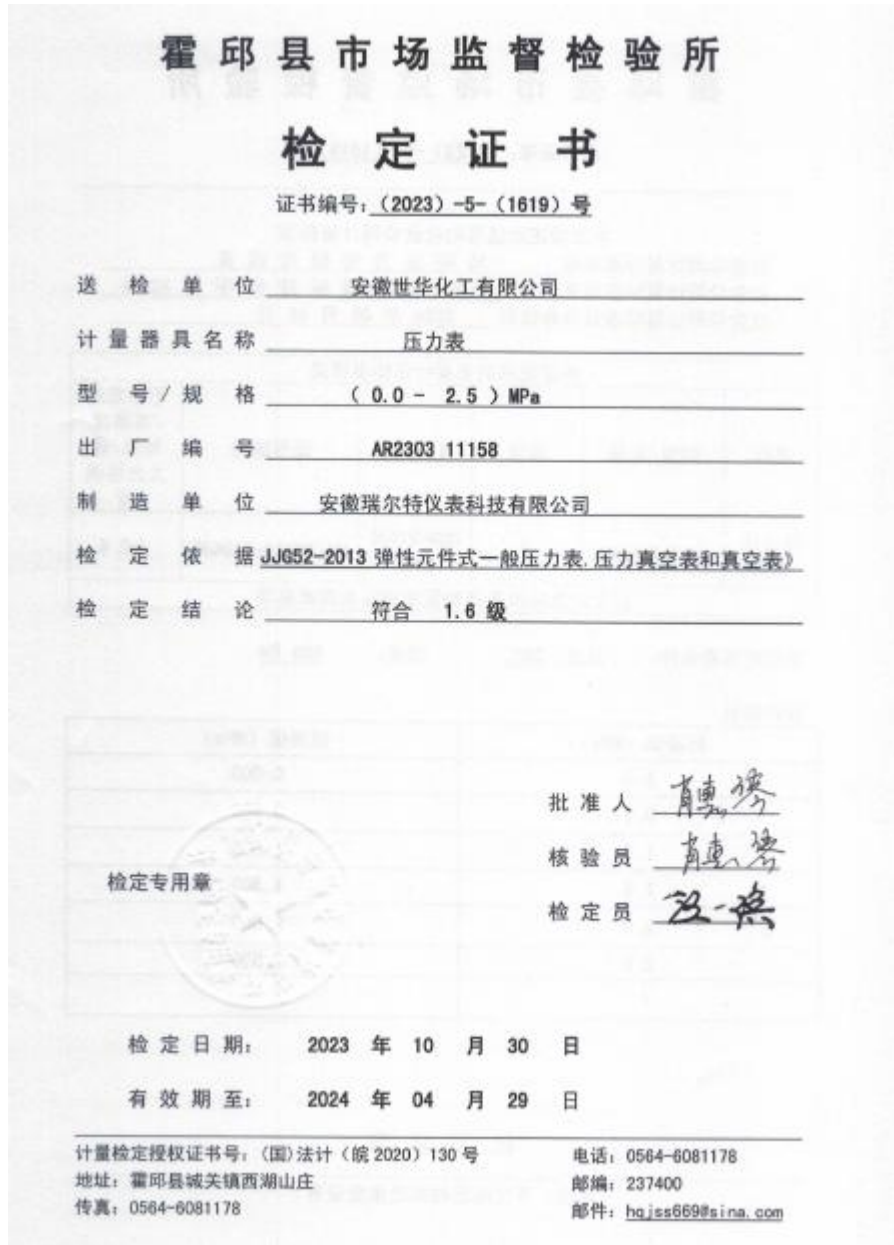 霍邱县市场监督检验所
检定证书
证书编号：（2023）-5-（1619）号
送检单位 安徽世华化工有限公司
计量器具名称 压力表
型号/规格 （ 0.0 - 2.5 ）MPa
出厂编号 AR2303 11158
制造单位 安徽瑞尔特仪表科技有限公司
检定依据 JJG52-2013 弹性元件式一般压力表.压力真空表和真空表》
检定结论 符合 1.6 级
批准人
核验员
检定专用章
检定员
检定日期： 2023 年 10 月 30 日
有效期至： 2024 年 04 月 29 日
计量检定授权证书号：（国）法计（皖 2020）130 号
电话：0564-6081178
地址：霍邱县城关镇西湖山庄
邮编：237400
传真：0564-6081178
邮件：hqjss669@sina.com